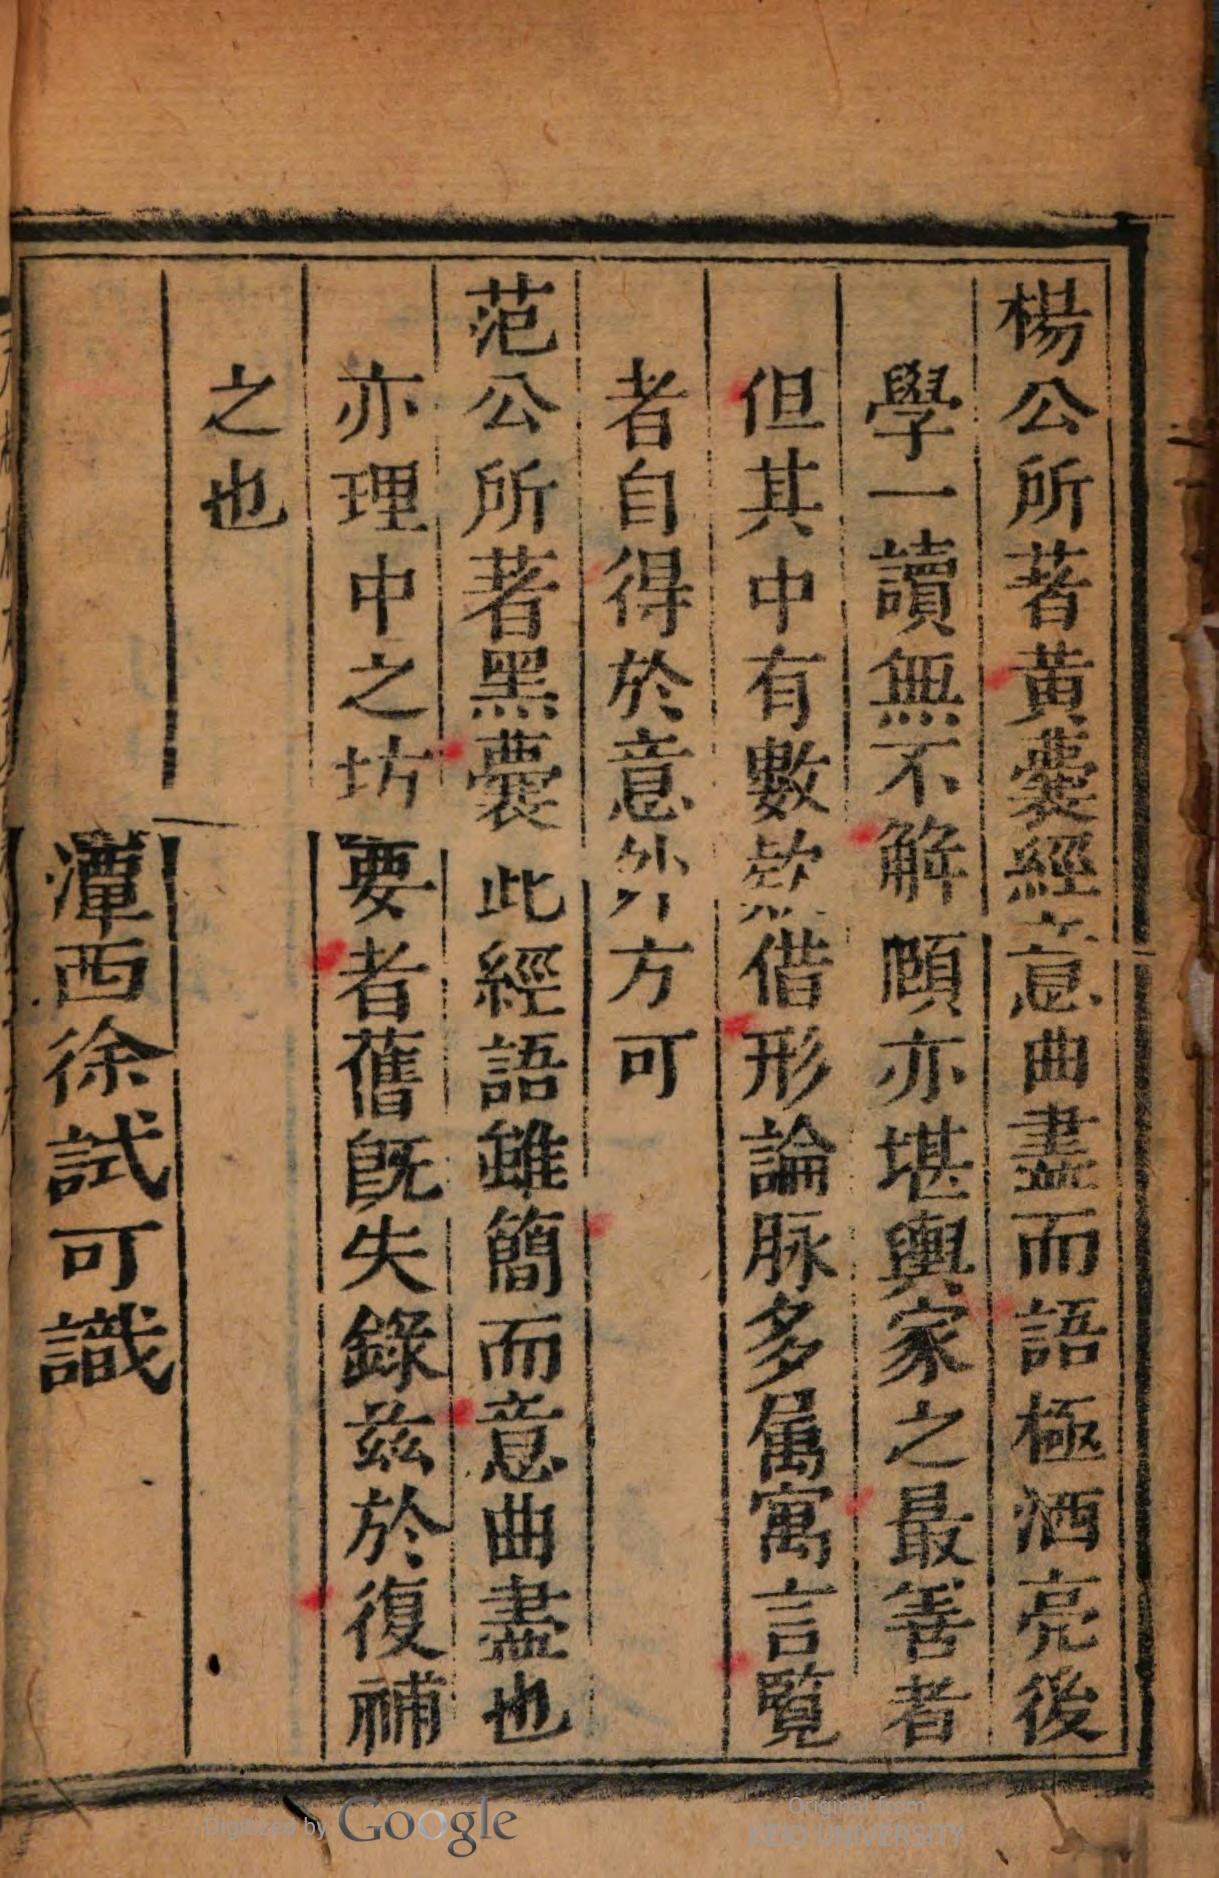 楊公所著黃囊經意曲盡而語極洒亮後
學一讀無不解頤亦堪輿家之最善者
但其中有數款借形論脉多属寓言覽
者自得於意外方可
范公所著黑囊此經語雖簡而意曲盡也
亦理中之坊要者舊旣失錄兹於復補
之也
潭西徐試可識
Digitized by Google
Original from
KEIO UNIVERSITY